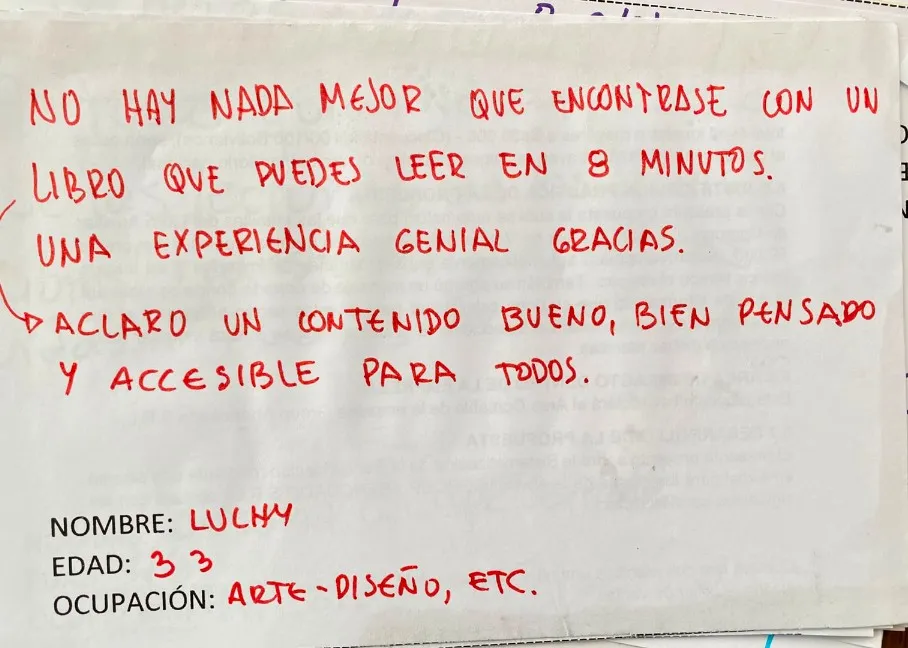 NO HAY NADA MEJOR QUE ENCONTRASE CON UN
LIBRO QUE PUEDES LEER EN 8 MINUTOS.
UNA EXPERIENCIA GENIAL GRACIAS.
ACLARO UN CONTENIDO BUENO, BIEN PENSADO
Y ACCESIBLE PARA TODOS.
NOMBRE: LUCHY
EDAD: 33
OCUPACIÓN: ARTE-DISEÑO, ETC.